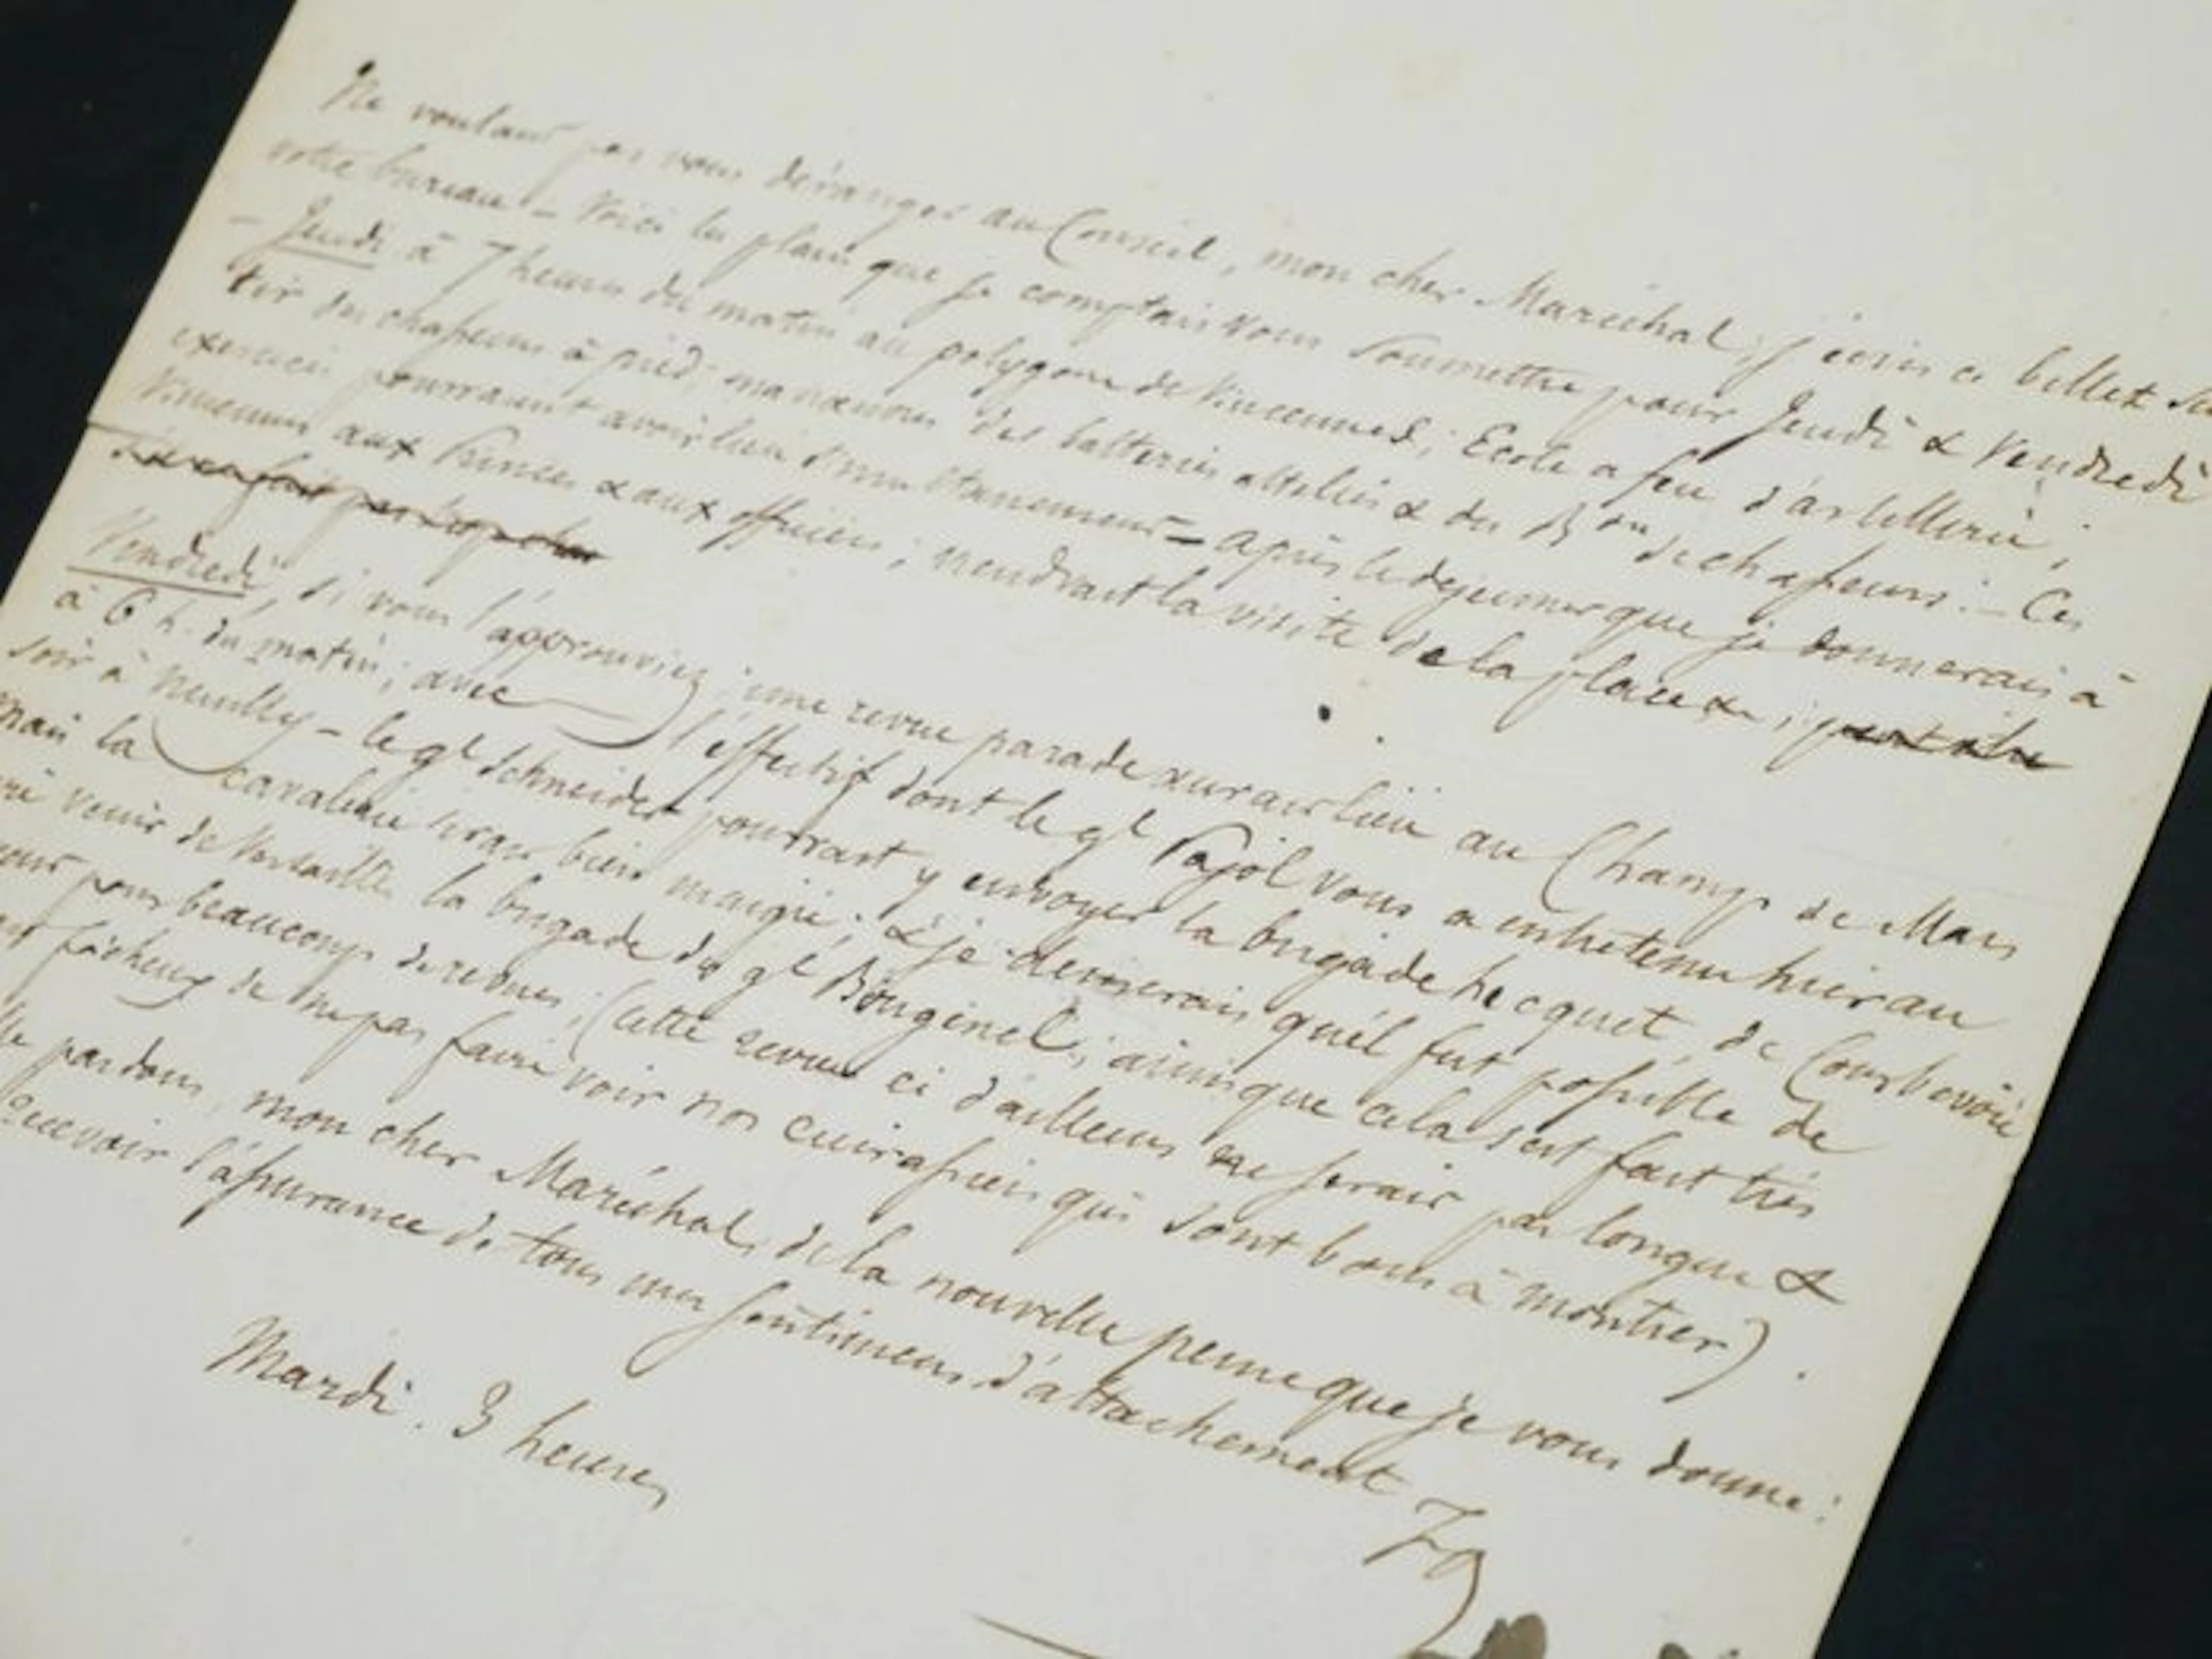 Ne voulant pas vous déranger au Conseil, mon cher Maréchal, j'écris ce billet
votre bureau - Voici les plans que je comptais vous soumettre pour Jeudi & Vendredi
- Jeudi à 7 heures du matin au polygone de Vincennes; Ecole a feu d'artillerie;
tir des chasseurs à pied; manœuvres des batteries attelées & du Bon de chasseurs. - Ces
exercices pourraient avoir lieu simultanement - après le dejeuner que je donnerais à
Vincennes aux Princes & aux officiers; viendrait la visite de la place &c;
Vendredi, si vous l'approuviez; une revue parade aurait lieu au Champ de Mars
à 6 h. du matin; avec l'effectif dont le gl Pajol vous a entretenu hier au
soir à Neuilly - le gl Schneider pourrait y envoyer la brigade hecquet, de Courbevoie
mais la cavalerie serait bien maigre; & je desirerais qu'il fut possible de
venir de Versailles la brigade du gl Bougenel; ainsi que cela s'est fait très
pour beaucoup de revues; (cette revue ci d'ailleurs ne serait pas longue &
fâcheux de ne pas faire voir nos cuirassiers qui sont bons à montrer).
pardon, mon cher Maréchal, de la nouvelle peine que je vous donne;
recevoir l'assurance de tous mes sentimens d'attachement
Mardi. 3 heures